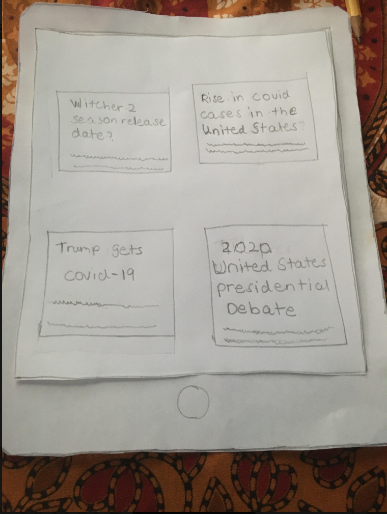 Witcher 2
season release
date?
Rise in covid
cases in the
United States
Trump gets
covid-19
2020
United States
presidential
Debate